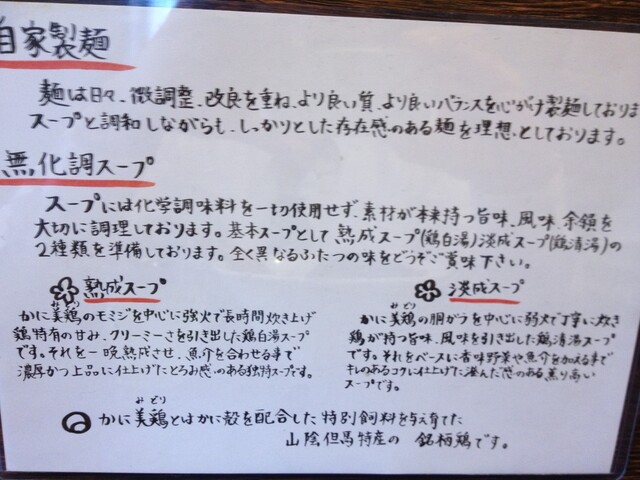 自家製麺
麺は日々、微調整、改良を重ね、より良い質、より良いバランスを心がけ製麺しておりま
スープと調和しながらも、しっかりとした存在感のある麺を理想としております。
無化調スープ
スープには化学調味料を一切使用せず、素材が本来持つ旨味、風味、余韻を
大切に調理しております。基本スープとして熟成スープ(鶏白湯)淡成スープ(鶏清湯)の
2種類を準備しております。全く異なるふたつの味をどうぞご賞味下さい。
熟成スープ
みどり
かに美鶏のモミジを中心に強火で長時間炊き上げ
鶏特有の甘み、クリーミーさを引き出した鶏白湯スープ
です。それを一晩熟成させ、魚介を合わせる事で
濃厚かつ上品に仕上げたとろみ感のある独特スープです。
淡成スープ
みどり
かに美鶏の胴がらを中心に弱火で丁寧に炊き
鶏が持つ旨味、風味を引き出した鶏清湯スープ
です。それをベースに香味野菜や魚介を加える事で
キレのあるコクに仕上げた澄んだ感のある薫り高い
スープです。
みどり
かに美鶏とはかに殻を配合した特別飼料を与え育てた
山陰但馬特産の 銘柄鶏です。